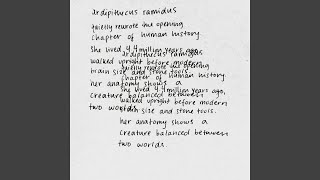 ardipithecus ramidus
quietly rewrote the opening
chapter of human history
she lived 4.4 million years ago,
walked upright before modern
brain size and stone tools.
her anatomy shows a
creature balanced between
two worlds.
ardipithecus ramidus
quietly rewrote the opening
chapter of human history
she lived 4.4 million years ago,
walked upright before modern
brain size and stone tools.
her anatomy shows a
creature balanced between
two worlds.